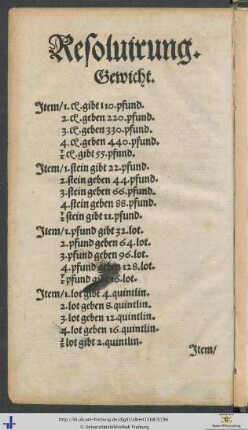 Resoluirung.
Gewicht.
Item/1.ct.gibt 110.pfund.
2.ct.geben 220.pfund.
3.ct.geben 330.pfund.
4.ct.geben 440.pfund.
½ ct.gibt 55.pfund.
Item/1.stein gibt 22.pfund.
2.stein geben 44.pfund.
3.stein geben 66.pfund.
4.stein geben 88.pfund.
½ stein gibt 11.pfund.
Item/1.pfund gibt 32.lot.
2.pfund geben 64.lot.
3.pfund geben 96.lot.
4.pfund geben 128.lot.
½ pfund gibt 16.lot.
Item/1.lot gibt 4.quintlin.
2.lot geben 8.quintlin.
3.lot geben 12.quintlin.
4.lot geben 16.quintlin.
½ lot gibt 2.quintlin.
Item/
© Universitätsbibliothek Freiburg